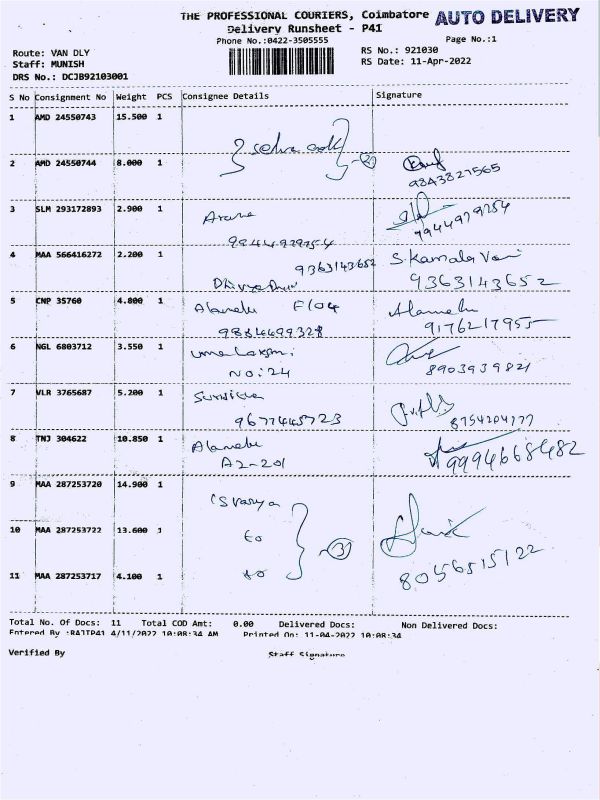 THE PROFESSIONAL COURIERS, Coimbatore AUTO DELIVERY
Delivery Runsheet - P41
Phone No.:0422-3505555 Page No.:1
Route: VAN DLY RS No.: 921030
Staff: MUNISH RS Date: 11-Apr-2022
DRS No.: DCJB92103001
S No Consignment No Weight PCS Consignee Details Signature
1 AMD 24550743 15.500 1
2 AMD 24550744 8.000 1 (2)
9843827565
3 SLM 293172893 2.900 1
9944929254 9944929254
4 MAA 566416272 2.200 1 9363143652 S.Kamala Vani
9363143652
5 CNP 35760 4.800 1 Alamelu F104 Alamelu
9884499328 9176217955
6 NGL 6803712 3.550 1 umaLakshmi
NO:24 8903939821
7 VLR 3765687 5.200 1
9677445723 8754204777
8 TNJ 304622 10.850 1 Alamelu
A2-201 9994668482
9 MAA 287253720 14.900 1 ISvarya
10 MAA 287253722 13.600 1 to (3)
11 MAA 287253717 4.100 1 to 8056515122
Total No. Of Docs: 11 Total COD Amt: 0.00 Delivered Docs: Non Delivered Docs:
Entered By :RAJTP41 4/11/2022 10:08:34 AM Printed On: 11-04-2022 10:08:34
Verified By Staff Signature